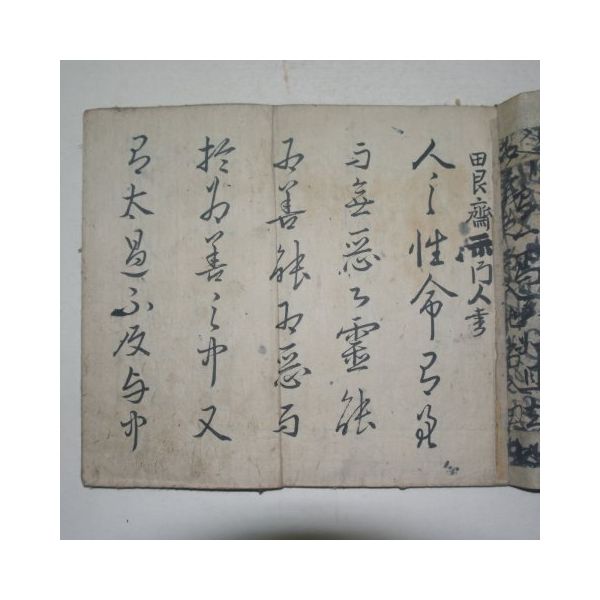 田艮齋示門人書
人之性命有善
而無惡心靈能
爲善能爲惡而
於爲善之中又
有太過不及与中